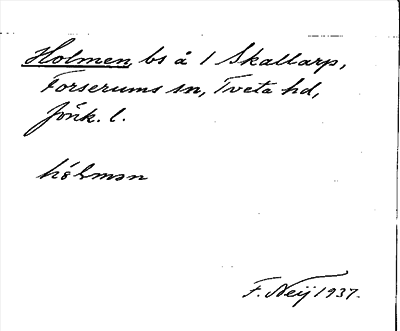 Holmen, bs å 1 Skallarp,
Forserums sn, Tveta hd,
Jönk. l.
hólmən
F. Neij 1937.